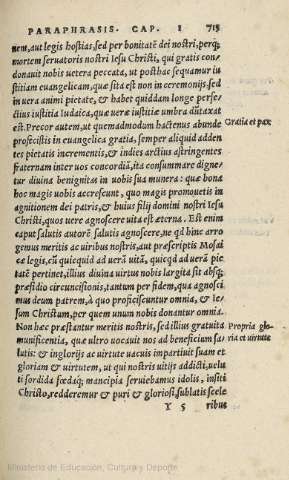 PARAPHRASIS. CAP. I 715
nem, aut legis hostias, sed per bonitatē dei nostri, perq;
mortem seruatoris nostri Iesu Christi, qui gratis con-
donauit nobis uetera peccata, ut posthac sequamur iu
stitiam euangelicam, quæ sita est non in ceremonijs, sed
in uera animi pietate, & habet quiddam longe perfe-
ctius iustitia Iudaica, quæ ueræ iustitiæ umbra dūtaxat
est. Precor autem, ut quemadmodum hactenus abunde
profecistis in euangelica gratia, semper aliquid adden
tes pietatis incrementis, & indies arctius astringentes
fraternam inter uos concordiā, ita consummare digne-
tur diuina benignitas in uobis sua munera: quæ bona
hoc magis uobis accrescunt, quo magis promouetis in
agnitionem dei patris, & huius filij domini nostri Iesu
Christi, quos uere agnoscere uita est æterna. Est enim
caput salutis autorē salutis agnoscere, ne qd hinc arro
gemus meritis ac uiribus nostris, aut præscriptis Mosai
cæ legis, cū quicquid ad uerā uitā, quicqd ad uerā pie
tatē pertinet, illius diuina uirtus nobis largita sit absq;
præsidio circuncisionis, tantum per fidem, qua agnosci
mus deum patrem, à quo proficiscuntur omnia, & Ie-
sum Christum, per quem unum nobis donantur omnia.
Non hæc præstantur meritis nostris, sed illius gratuita
munificentia, quæ ultro uocauit nos ad beneficium sa-
lutis: & inglorijs ac uirtute uacuis impartiuit suam et
gloriam & uirtutem, ut qui nostris uitijs addicti, uelu
ti sordida fœdaq; mancipia seruiebamus idolis, insiti
Christo, redderemur & puri & gloriosi, sublatis scele
Y 5 ribus
Gratia et pax
Propria glo-
ria et uirtute
Ministerio de Educación, Cultura y Deporte